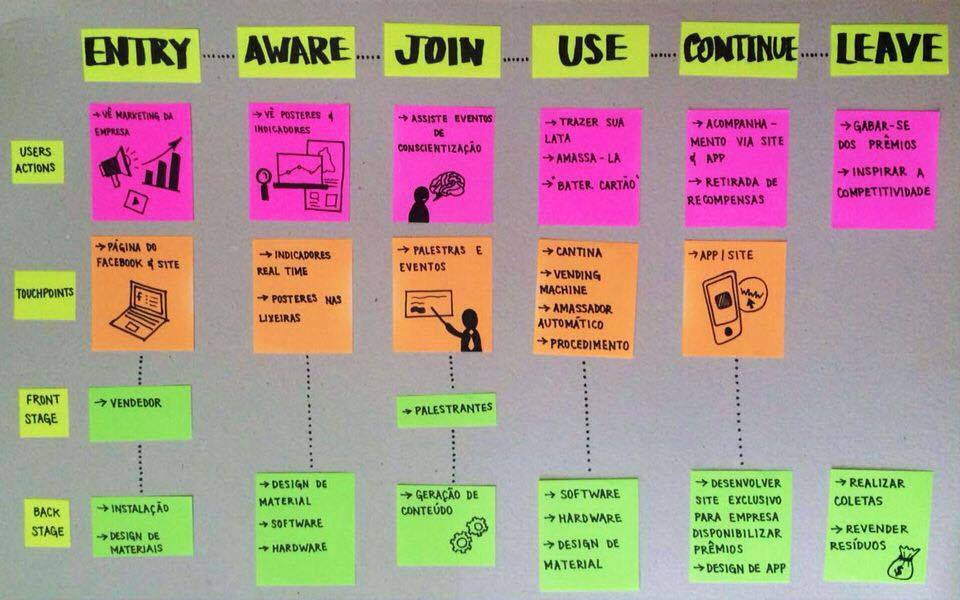 ENTRY
AWARE
JOIN
USE
CONTINUE
LEAVE
USERS
ACTIONS
→ VÊ MARKETING DA
EMPRESA
→ VÊ POSTERES &
INDICADORES
→ ASSISTE EVENTOS
DE
CONSCIENTIZAÇÃO
→ TRAZER SUA
LATA
→ AMASSA-LA
→ "BATER CARTÃO"
→ ACOMPANHA-
MENTO VIA SITE
& APP
→ RETIRADA DE
RECOMPENSAS
→ GABAR-SE
DOS PRÊMIOS
→ INSPIRAR A
COMPETITIVIDADE
TOUCHPOINTS
→ PÁGINA DO
FACEBOOK & SITE
f
→ INDICADORES
REAL TIME
→ POSTERES NAS
LIXEIRAS
→ PALESTRAS E
EVENTOS
→ CANTINA
→ VENDING
MACHINE
→ AMASSADOR
AUTOMÁTICO
→ PROCEDIMENTO
→ APP / SITE
WWW
FRONT
STAGE
→ VENDEDOR
→ PALESTRANTES
BACK
STAGE
→ INSTALAÇÃO
→ DESIGN DE
MATERIAIS
→ DESIGN DE
MATERIAL
→ SOFTWARE
→ HARDWARE
→ GERAÇÃO DE
CONTEÚDO
→ SOFTWARE
→ HARDWARE
→ DESIGN DE
MATERIAL
→ DESENVOLVER
SITE EXCLUSIVO
PARA EMPRESA
DISPONIBILIZAR
PRÊMIOS
→ DESIGN DE APP
→ REALIZAR
COLETAS
→ REVENDER
RESÍDUOS
$